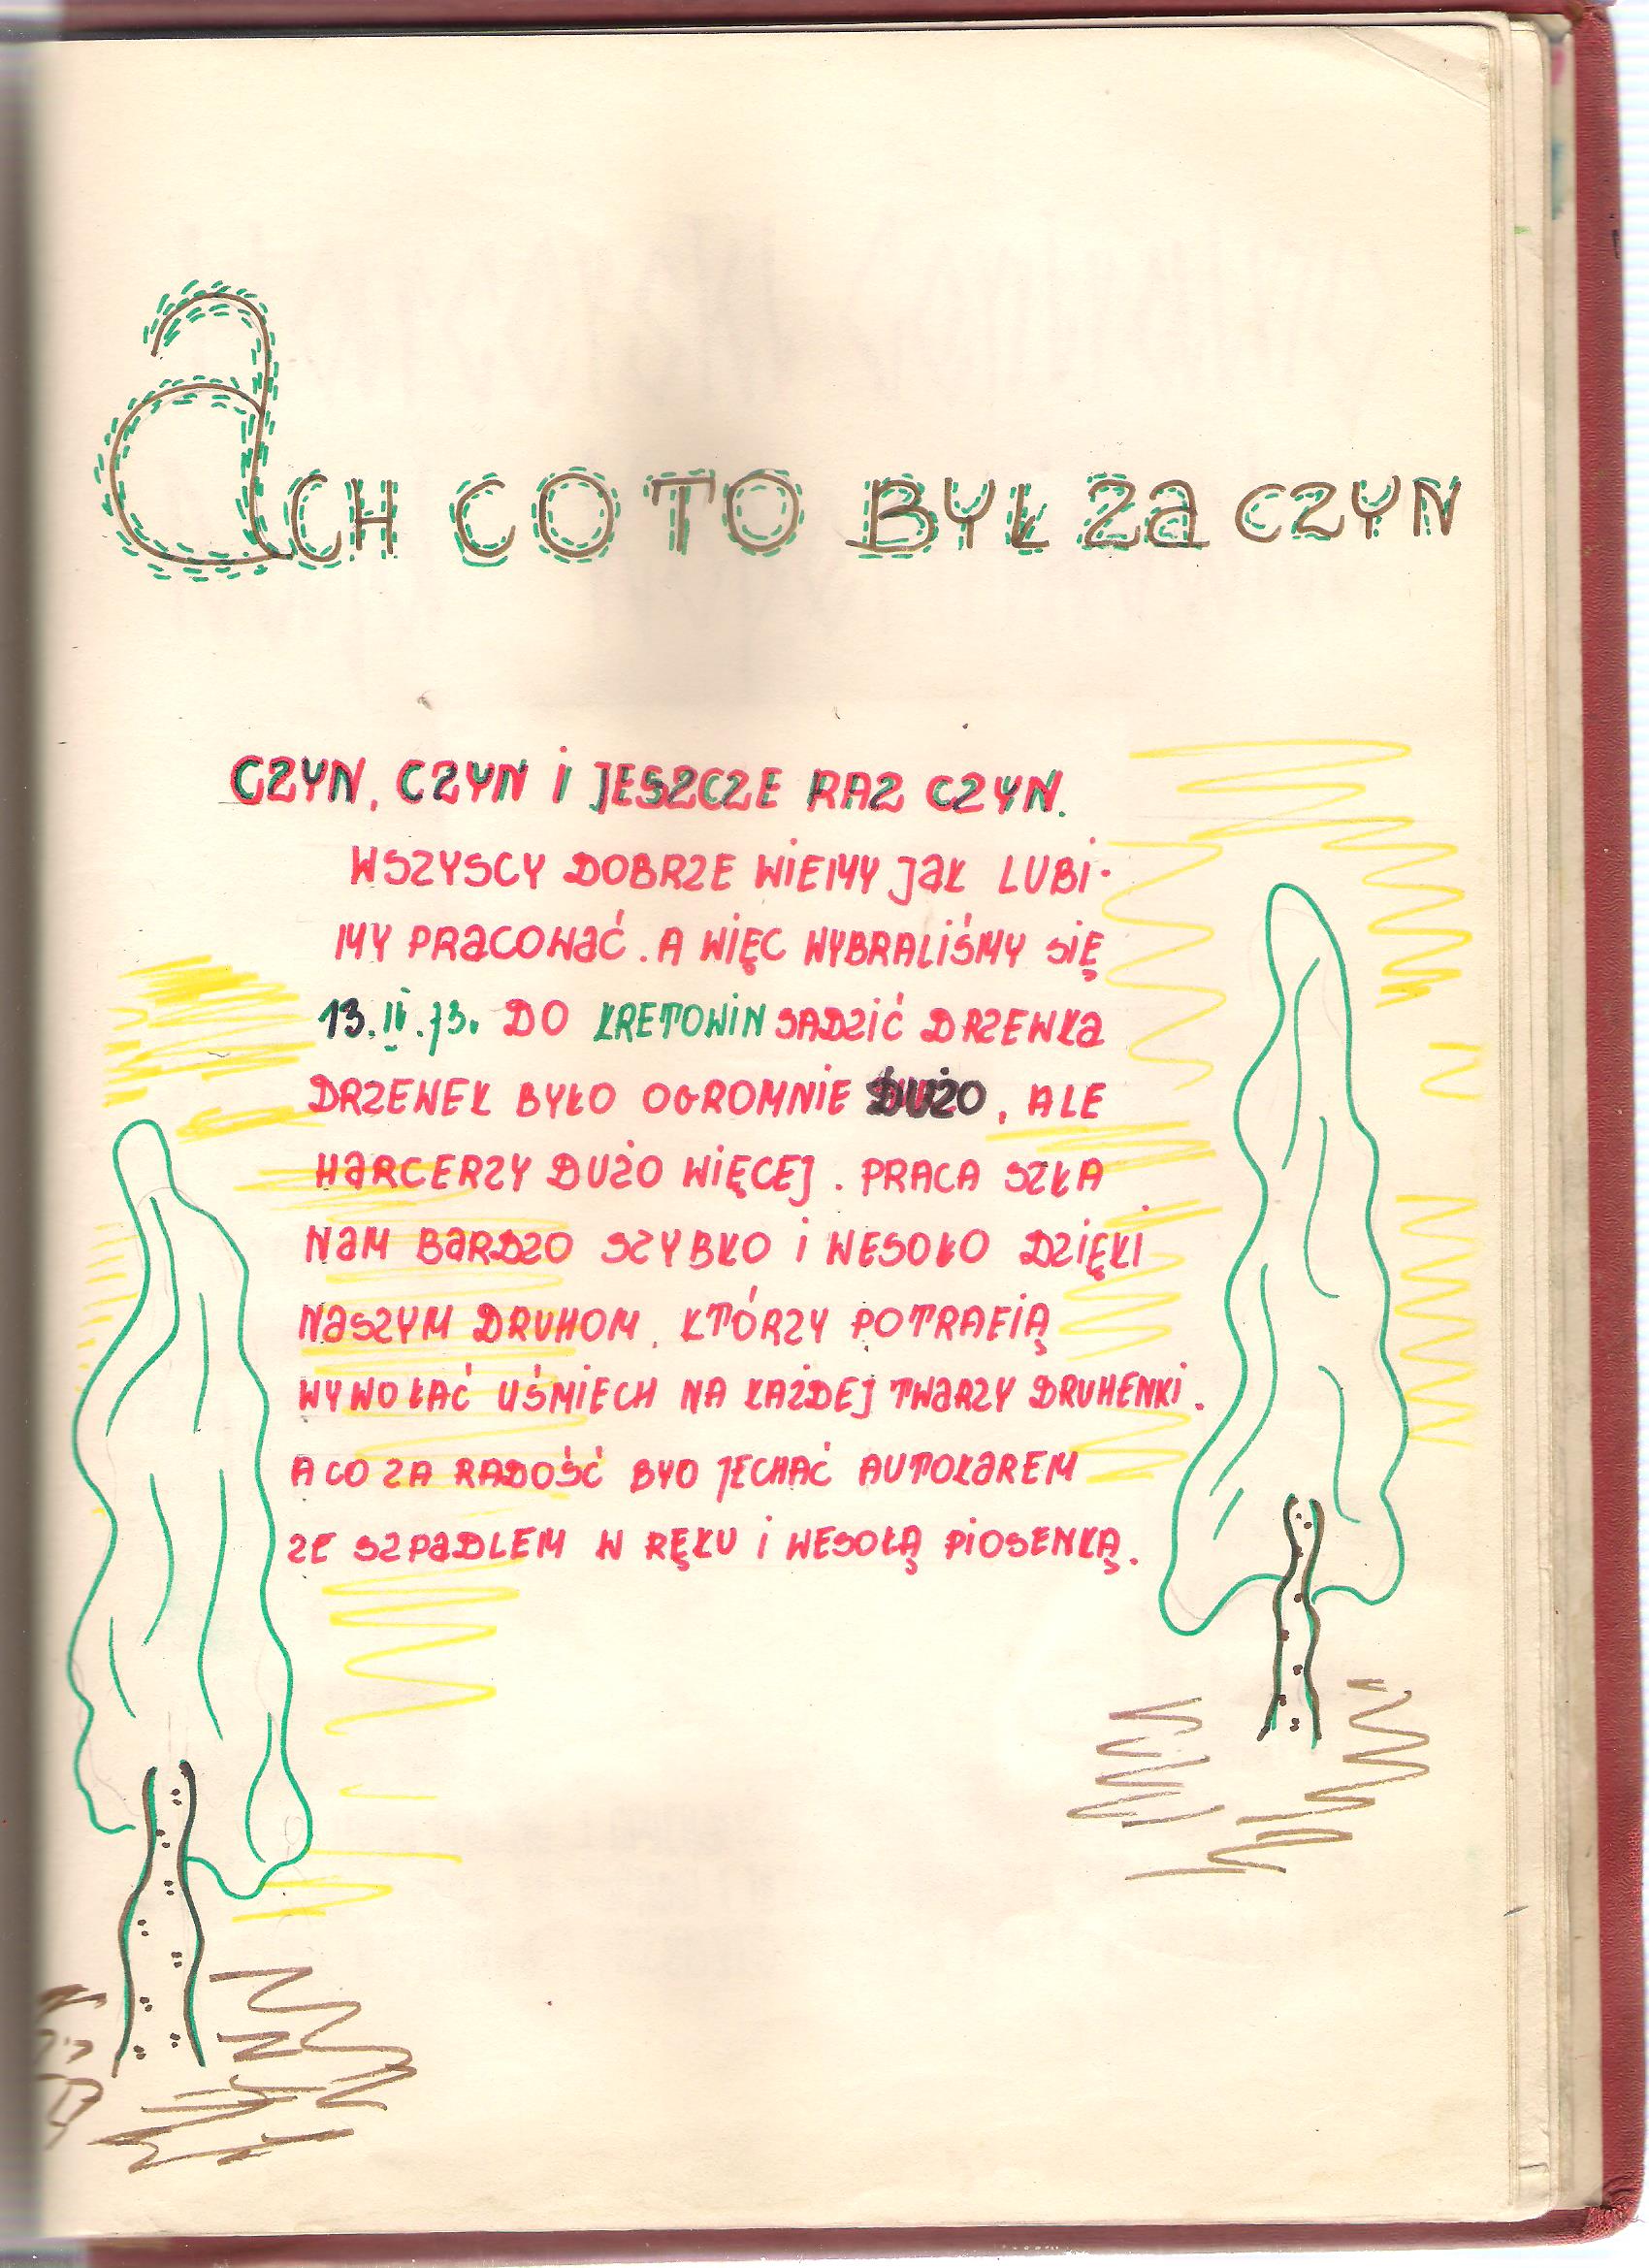 aCH CO TO BYŁ Za CZYN
CZYN, CZYN I JESZCZE RAZ CZYN.
WSZYSCY DOBRZE WIEMY JaK LUBI-
MY PRaCOWAĆ. A WIĘC WYBRALIŚMY SIĘ
13.IV.73. DO KRETOWIN SADZIĆ DRZEWKa
DRZEWEK BYŁO OGROMNIE DUŻO, ALE
HaRCERZY DUŻO WIĘCEJ. PRACA SZŁA
NaM BaRDZO SZYBKO I WESOŁO DZIĘKI
NaSZYM DRUHOM, KTÓRZY POTRAFIĄ
WYWOŁAĆ UŚMIECH NA KAŻDEJ TWaRZY DRUHENKI.
A CO ZA RADOŚĆ BYO JECHAĆ AUTOKaREM
ZE SZPaDLEM W RĘKU I WESOŁĄ PIOSENKĄ.